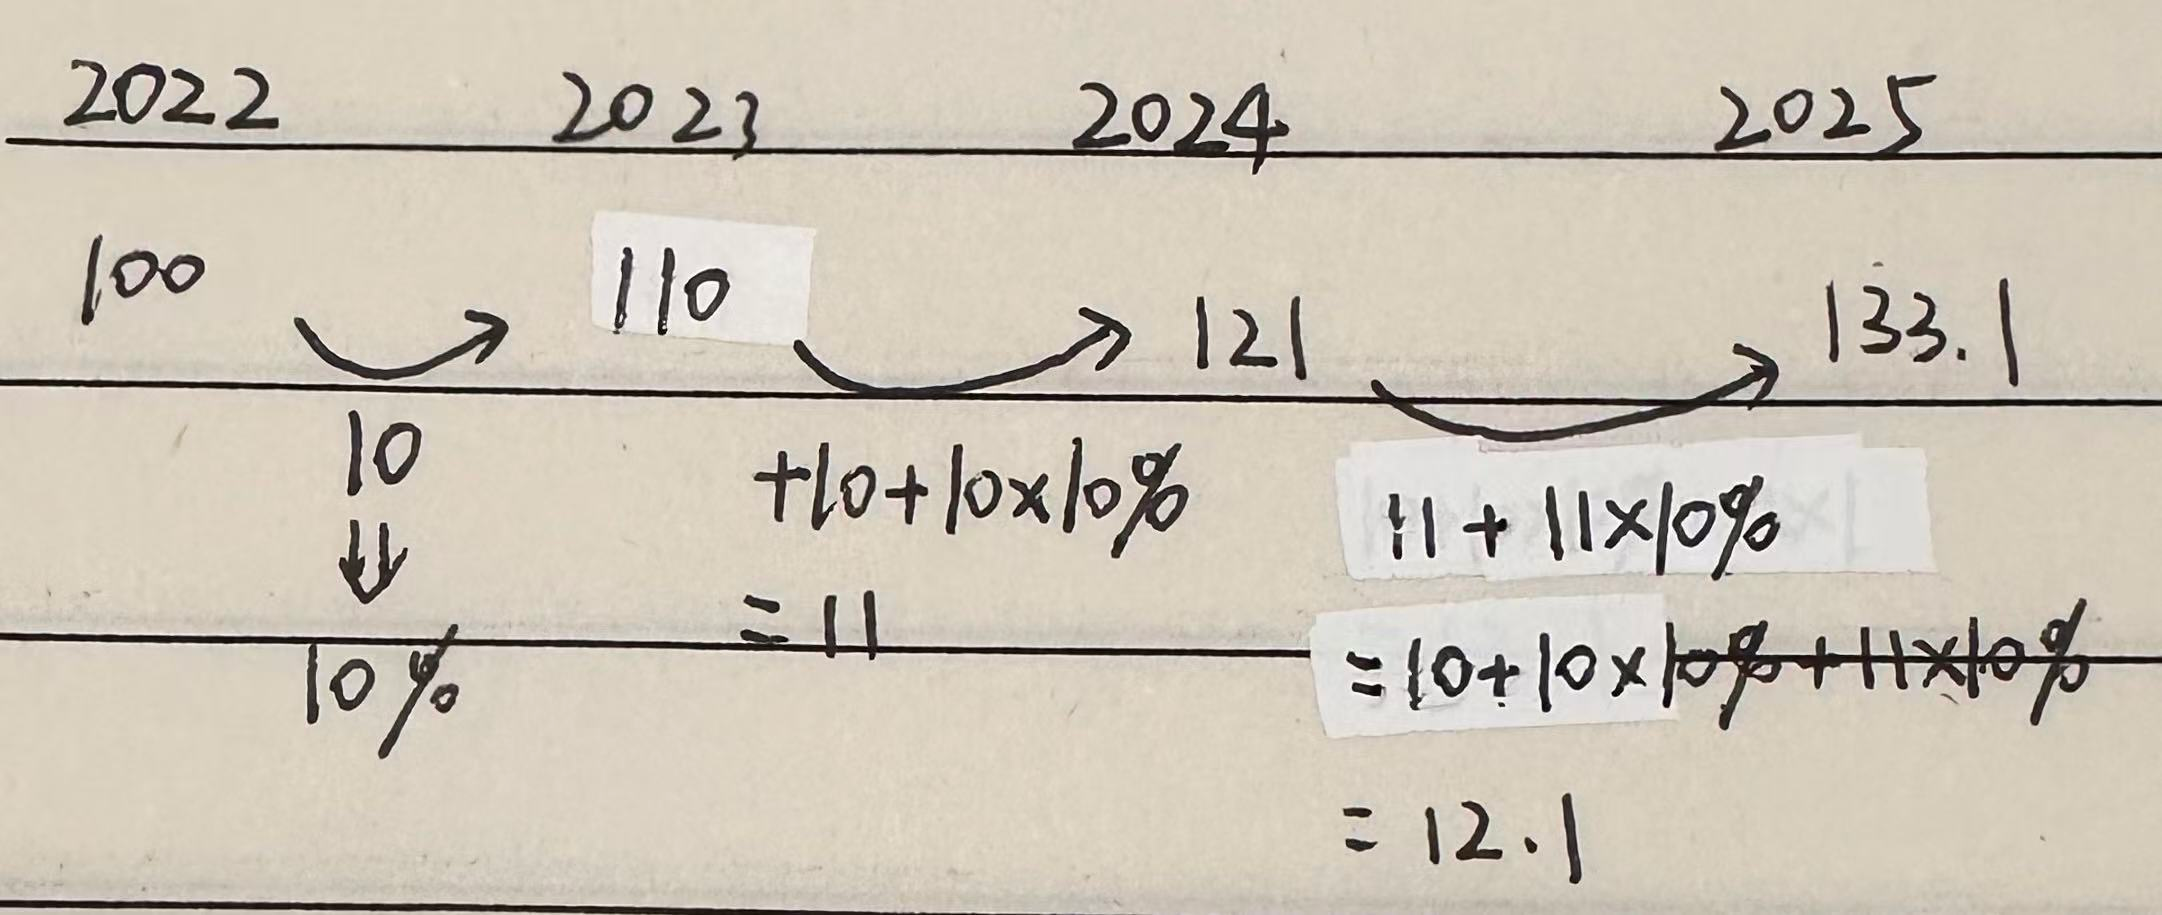 2022 2023 2024 2025
100 110 121 133.1
10 +10+10×10% 11+11×10%
⇓ =11 =10+10×10%+11×10%
10% =12.1